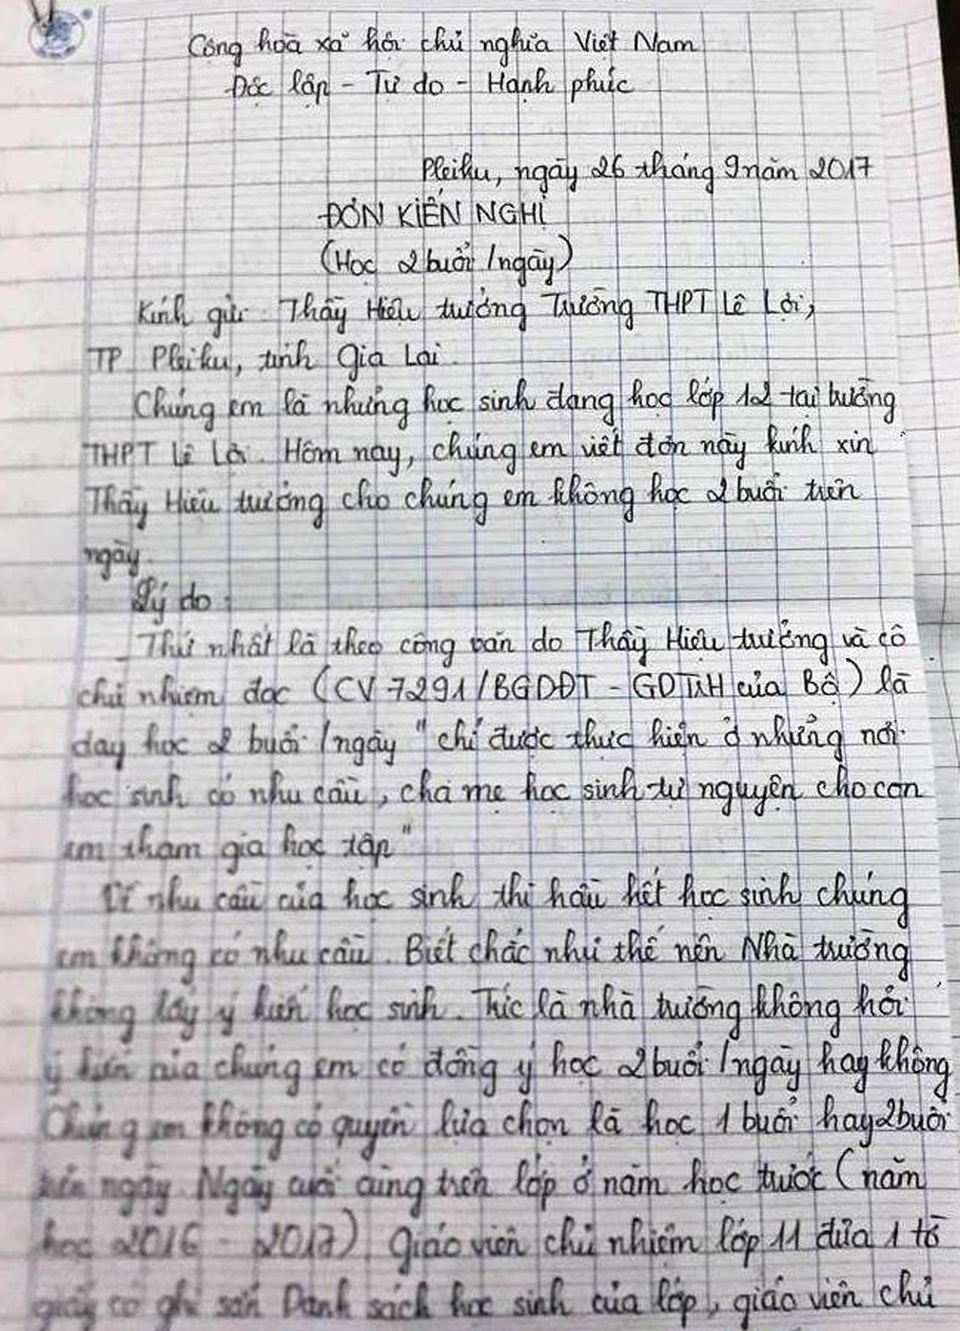 Cộng hoà xã hội chủ nghĩa Việt Nam
Độc lập - Tự do - Hạnh phúc
Pleiku, ngày 26 tháng 9 năm 2017
ĐƠN KIẾN NGHỊ
(Học 2 buổi /ngày)
Kính gửi: Thầy Hiệu trưởng Trường THPT Lê Lợi,
TP Pleiku, tỉnh Gia Lai.
Chúng em là những học sinh đang học lớp 12 tại trường
THPT Lê Lợi. Hôm nay, chúng em viết đơn này kính xin
Thầy Hiệu trưởng cho chúng em không học 2 buổi trên
ngày.
Lý do:
Thứ nhất là theo công văn do Thầy Hiệu trưởng và cô
chủ nhiệm đọc (CV 7291/BGDĐT - GDTrH của Bộ) là
dạy học 2 buổi /ngày "chỉ được thực hiện ở những nơi
học sinh có nhu cầu, cha mẹ học sinh tự nguyện cho con
em tham gia học tập"
Về nhu cầu của học sinh thì hầu hết học sinh chúng
em không có nhu cầu. Biết chắc như thế nên Nhà trường
không lấy ý kiến học sinh. Tức là nhà trường không hỏi
ý kiến của chúng em có đồng ý học 2 buổi /ngày hay không
Chúng em không có quyền lựa chọn là học 1 buổi hay 2 buổi
trên ngày. Ngày cuối cùng trên lớp ở năm học trước (năm
học 2016 2017). Giáo viên chủ nhiệm lớp 11 đưa 1 tờ
giấy có ghi sẵn Danh sách học sinh của lớp, giáo viên chủ